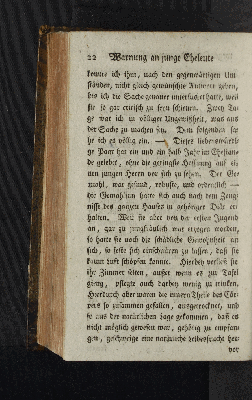 22 Warnung an junge Eheleute
konnte ich ihm, nach den gegenwärtigen Um-
ständen, nicht gleich gewünschte Antwort geben,
bis ich die Sache genauer untersuchet hatte, weil
sie so gar critisch zu seyn schiene. Zwey Ta-
ge war ich in völliger Ungewißheit, was aus
der Sache zu machen sey. Dem folgenden sa-
he ich es völlig ein. — Dieses liebenswürdi-
ge Paar hat ein und ein halb Jahr im Ehestan-
de gelebt, ohne die geringste Hoffnung auf ei-
nen jungen Herrn vor sich zu sehen. Der Ge-
mahl, war gesund, robuste, und ordentlich —
der Gemahlinn hatte sich auch nach dem Zeug-
nisse des ganzen Hauses in gehöriger Diät er-
halten. Weil sie aber von der ersten Jugend
an, gar zu jungfräulich war erzogen worden,
so hatte sie noch die schädliche Gewohnheit an
sich, so feste sich einschnüren zu lassen, daß sie
kaum Luft schöpfen konnte. Hierbey verließ sie
ihr Zimmer selten, außer wenn es zur Tafel
gieng, pflegte auch darbey wenig zu trinken,
Hierdurch aber waren die innern Theile des Cör-
pers so zusammen gefallen, ausgetrocknet, und
so aus der natürlichen Lage gekommen, daß es
nicht möglich gewesen war, gehörig zu empfan-
gen, geschweige eine natürliche Leibesfrucht her-
vor